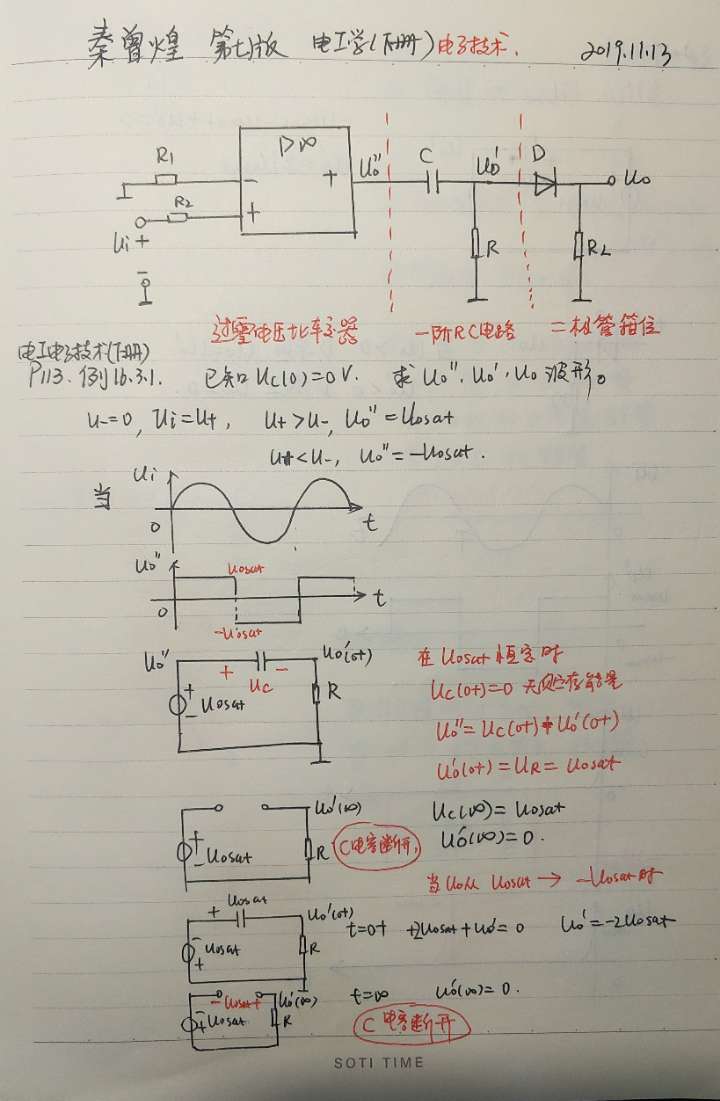 秦曾煌 第七版 电工学(下册)电子技术. 2019.11.13
R1 ▷∞ Uo'' C Uo' D Uo
- + +
R2 Ui + - R RL
过零电压比较器 一阶RC电路 二极管箝位
电工电子技术(下册)
P113. 例16.3.1. 已知 Uc(0)=0V. 求 Uo''. Uo'. Uo 波形。
U-=0, Ui=U+, U+>U-, Uo''=Uosat
U+<U-, Uo''=-Uosat.
当 Ui 0 t
Uo'' Uosat 0 t
-Uosat
Uo'' + - Uo'(0+) 在 Uosat 恒定时
+ - Uosat Uc R Uc(0+)=0 无储存能量
Uo''=Uc(0+)+Uo'(0+)
Uo'(0+)=UR=Uosat
Uo'(∞) Uc(∞)=Uosat
+ - Uosat R C电容断开, Uo'(∞)=0.
当Uo从 Uosat → -Uosat时
+ Uosat Uo'(0+) t=0+ +2Uosat+Uo'=0 Uo'=-2Uosat
- + Uosat R
- Uosat + Uo'(∞) t=∞ Uo'(∞)=0.
- + Uosat R C电容断开
SOTI TIME